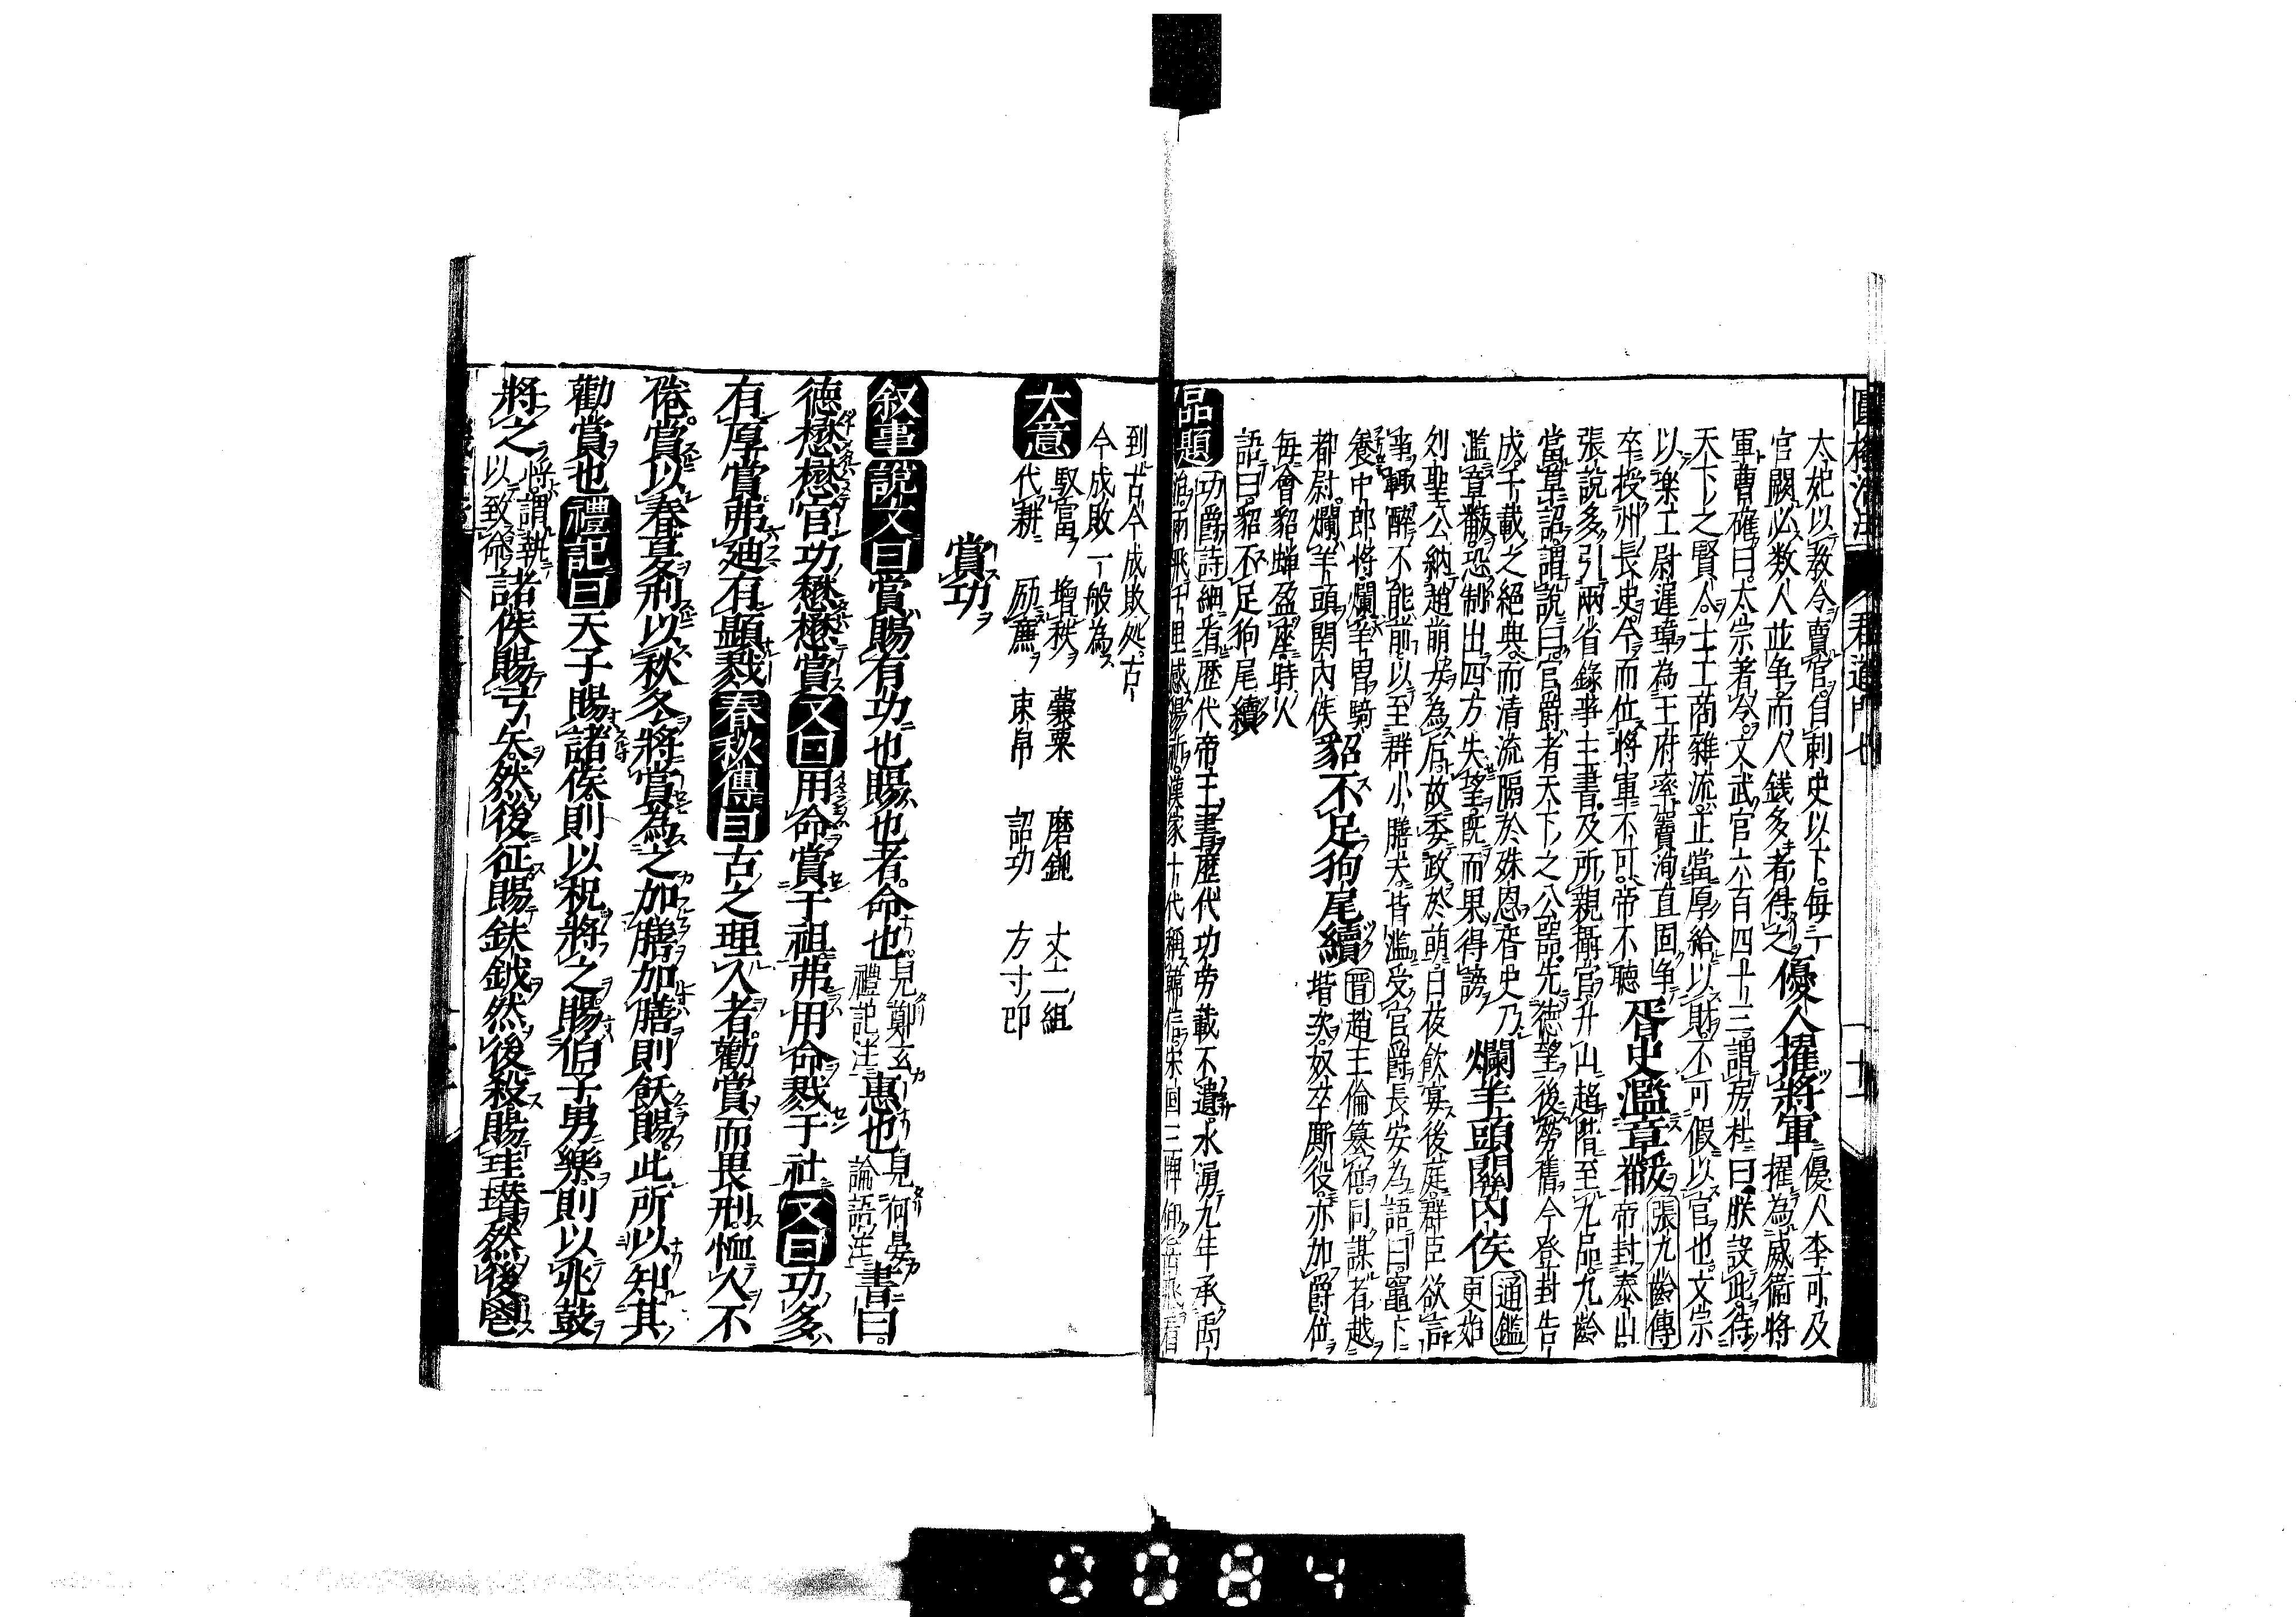 太妃以教令賣官自刺史以下毎一
官闕必数人並争而入銭多者得之 優人擢將軍 優人李可及擢為威衞將
軍曹確曰太宗著令文武官六百四十三謂房杜曰朕設此待
天下之賢人士工商雜流正當厚給以財不可假以官也文宗
以楽工尉遲璋為王府率竇洵直固争
卒授州長史今而位將軍不可帝不聽 胥史濫章紱 張九齡傳 帝封泰山
張說多引兩省錄事主書及所親攝官升山超階至九品九齡
當草詔謂說曰官爵者天下之公器先德望後勞舊今登封告
成千載之絕典而清流隔於殊恩胥史乃
濫章黻恐制出四方失望既而果得謗 爛羊頭關內侯 通鑑 更始
列聖公納趙萌女為后故委政於萌日夜飲宴後庭群臣欲言
事輙醉不能前以至群小膳夫皆濫受官爵長安為語曰竈下
養中郎将爛羊胃騎
都尉爛羊頭関內侯 貂不足狗尾續 晋 趙王倫簒位同謀者越
堦次奴卒厮役亦加爵位
毎會貂蟬盈座時人
語曰貂不足狗尾續
品題 功爵詩 細看歷代帝王書歷代功劳載不遺水湧九年承禹
到古今成敗処古
今成敗一般為
大意 馭富 增秩 藁粟 磨鈍 丈二組
代耕 励廉 束帛 詔功 方寸印
賞功
叙事 說文曰 賞賜有功也賜也者命也 見鄭玄禮記注 惠也 見何晏論語注 書曰
德懋懋官功懋懋賞 又曰 用命賞于祖弗用命戮于社 又曰 功多
有厚賞弗廸有顯戮 春秋傳曰 古之理人者勸賞而畏刑恤人不
倦賞以春夏刑以秋冬將賞為之加膳加膳則飫賜此所以知其
勸賞也 禮記曰 天子賜諸侯樂則以柷將之賜伯子男樂則以鼗鼓
將之 將謂執以致命 諸侯賜弓矢然後征賜鈇鉞然後殺賜珪瓚然後鬯
0084